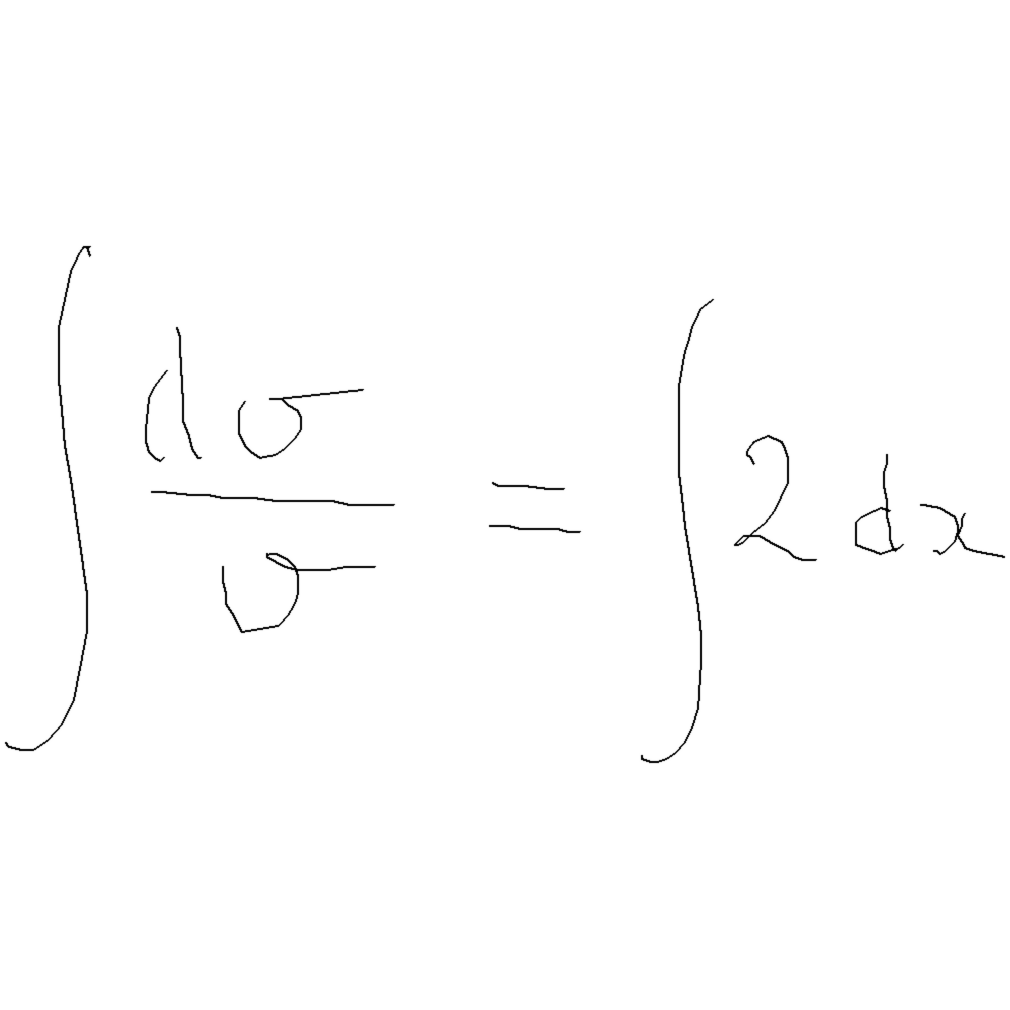 ∫ dσ/σ = ∫ 2 dx